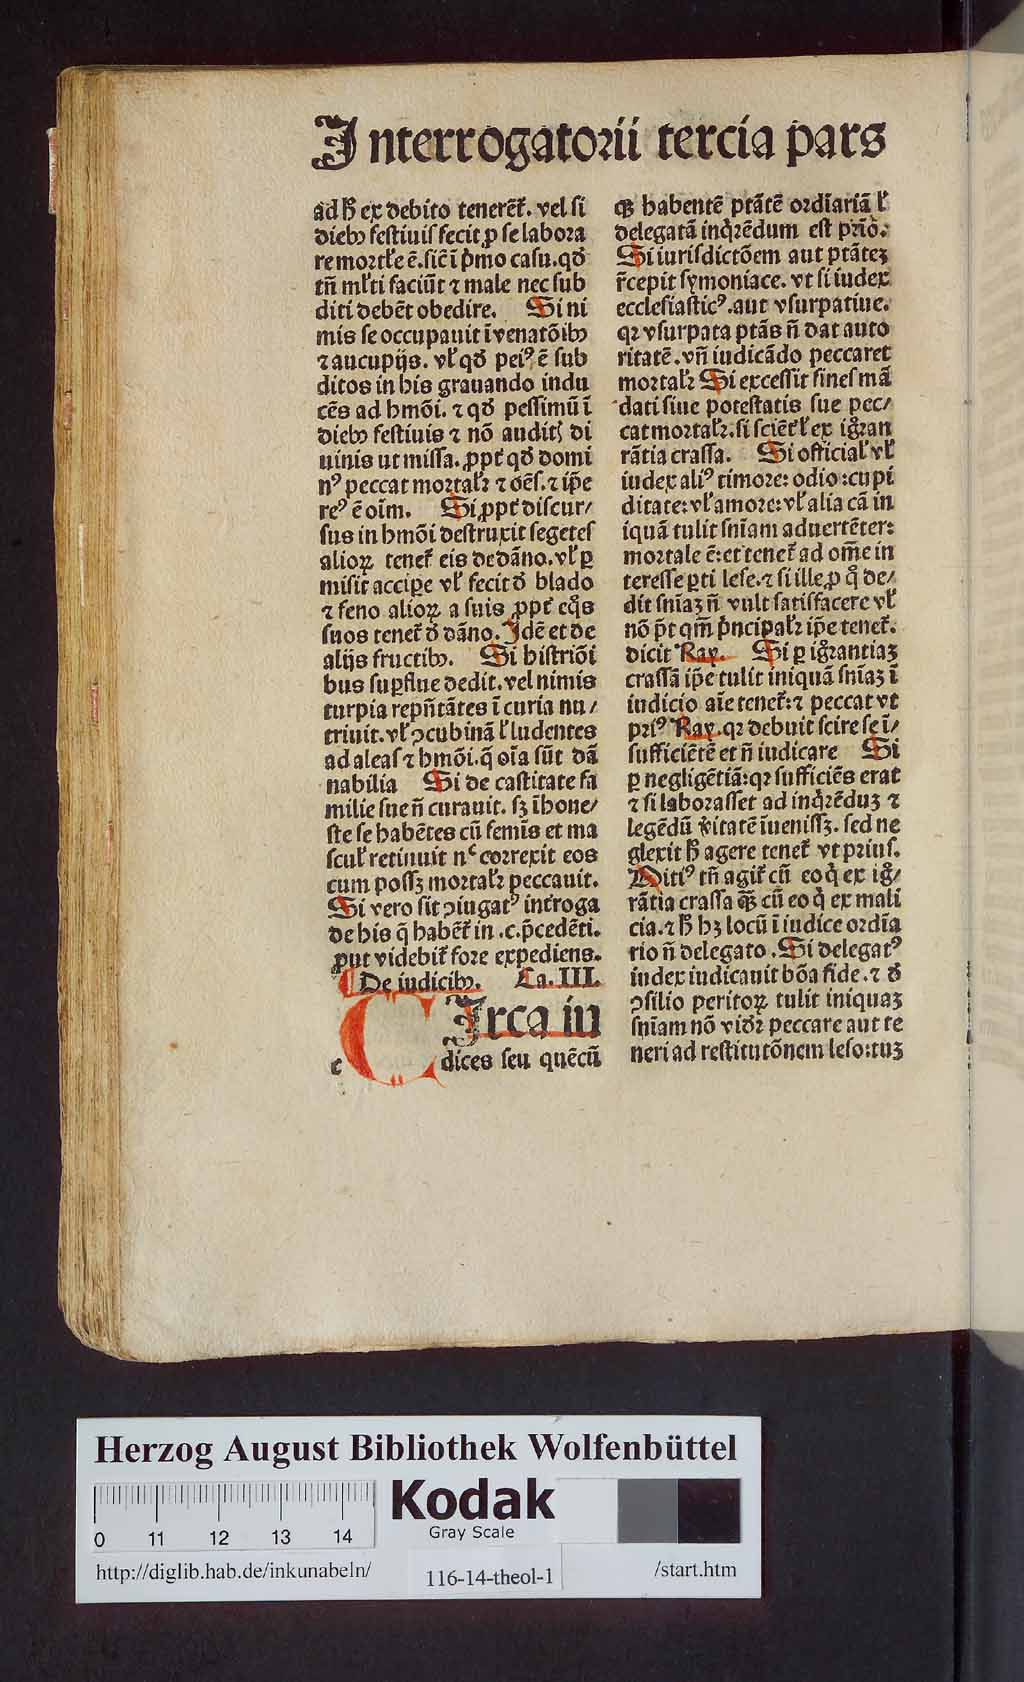 Interrogatorii tercia pars
ad hͦ ex debito tenerēt᷑. vel si
diebꝰ festiuis fecit ꝓ se labora
re mortl̓e ē. sic̄ ī pͥmo casu. qd̓
tn̄ ml̓ti faciūt ⁊ male nec sub
diti debēt obedire. Si ni
mis se occupauit ī venatōibꝰ
⁊ aucupijs. vl̓ qd̓ peiꝰ ē sub
ditos in his grauando indu
cēs ad hmōi. ⁊ qd̓ pessimū ī
diebꝰ festiuis ⁊ nō auditꝭ di
uinis ut missa. ꝓpt̓ qd̓ domi
nꝰ peccat mortalr̓ ⁊ oēs. ⁊ ip̄e
reꝰ ē oīm. Si ꝓpt̓ discur/
sus in hmōi destruxit segetes
alioꝝ tenet᷑ eis de dāno. vl̓ ꝑ
misit accipe vl̓ fecit d̓ blado
⁊ feno alioꝝ a suis ꝓpt̓ eq̊s
suos tenet᷑ d̓ dāno. Idē et de
alijs fructibꝰ. Si histriōi
bus suꝑflue dedit. vel nimis
turpia repn̄tātes ī curia nu/
triuit. vl̓ ꝯcubinā l̓ ludentes
ad aleas ⁊ hmōi. q̄ oīa sūt dā
nabilia Si de castitate fa
milie sue n̄ curauit. sꝫ īhone/
ste se habētes cū femīs et ma
scul̓ retinuit nͨ correxit eos
cum possꝫ mortalr̓ peccauit.
Si vero sit ꝯiugatꝰ int̓roga
de his q̄ habēt᷑ in .c. p̄cedēti.
ꝓut videbit᷑ fore expediens.
De iudicibꝰ. Ca. III.
CIrca iu
c dices seu quēcū
qꝫ habentē ptātē ordīariā l̓
delegatā inq̇rēdum est pr̄īo.
Si iurisdictōem aut ptātēꝫ
r̄cepit symoniace. vt si iudex
ecclesiasticꝰ. aut vsurpatiue.
qꝛ vsurpata ptās n̄ dat auto
ritatē. vn̄ iudicādo peccaret
mortalr̓ Si excessit fines mā
dati siue potestatis sue pec/
cat mortalr̓. si sciēt̓ l̓ ex igr̄an
rātia crassa. Si official̓ vl̓
iudex aliꝰ timore: odio: cupi
ditate: vl̓ amore: vl̓ alia cā in
iquā tulit sn̄iam aduertēter:
mortale ē: et tenet᷑ ad om̄e in
teresse ꝑti lese. ⁊ si ille ꝓ q̊ de/
dit sn̄iaꝫ n̄ vult satisfacere vl̓
nō pōt qm̄ pͥncipalr̓ ip̄e tenet᷑.
dicit Ray. Si ꝑ igr̄antiaꝫ
crassā ip̄e tulit iniquā sn̄iaꝫ ī
iudicio aīe tenet᷑: ⁊ peccat vt
priꝰ Ray. qꝛ debuit scire se ī/
sufficiētē et n̄ iudicare Si
ꝑ negligētiā: qꝛ sufficiēs erat
⁊ si laborasset ad inq̇rēduꝫ ⁊
legēdū v̓itatē īuenissꝫ. sed ne
glexit hͦ agere tenet᷑ vt prius.
Mitiꝰ tn̄ agit᷑ cū eo q̇ ex igr̄/
rātia crassa qꝫ cū eo q̇ ex mali
cia. ⁊ hͦ hꝫ locū ī iudice ordīa
rio n̄ delegato. Si delegatꝰ
iudex iudicauit bōa fide. ⁊ d̓
ꝯsilio peritoꝝ tulit iniquaꝫ
sn̄iam nō vidr̓ peccare aut te
neri ad restitutōnem leso: tuꝫ
Herzog August Bibliothek Wolfenbüttel
Kodak
Gray Scale
0 11 12 13 14
http://diglib.hab.de/inkunabeln/
116-14-theol-1
/start.htm